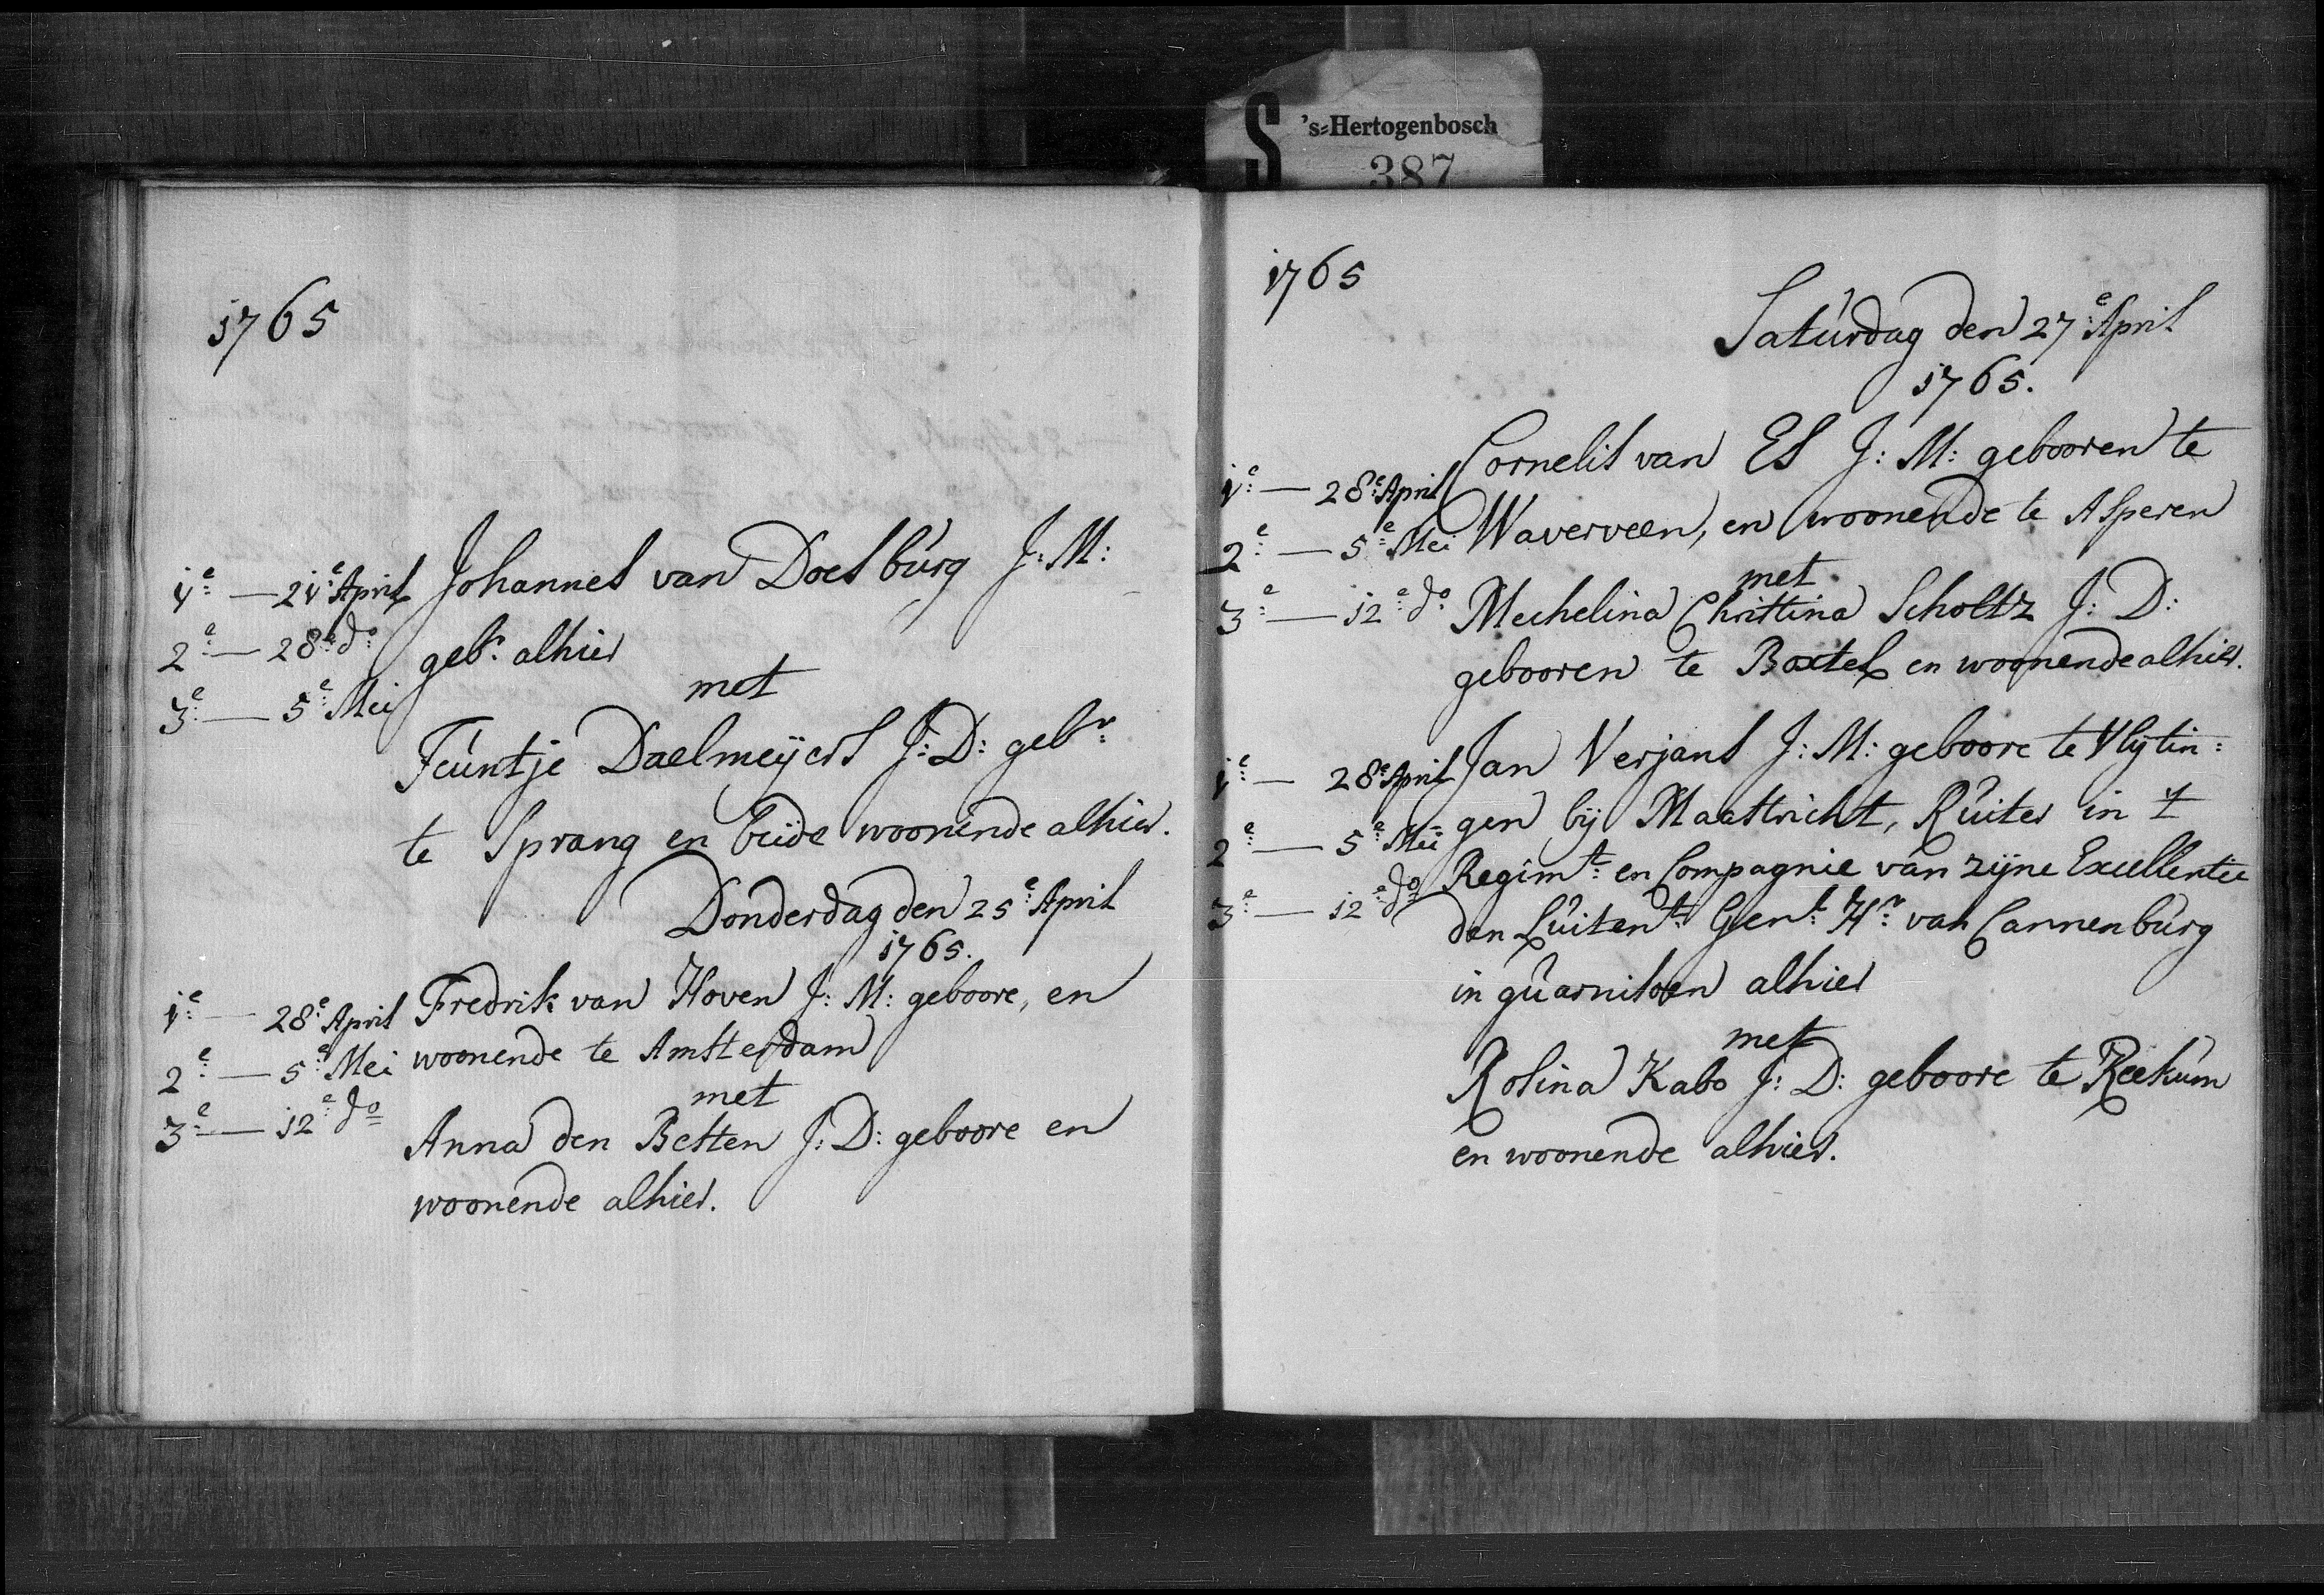 S 's-Hertogenbosch
387
1765
1e: — 21e: April Johannes van Doesburg J: M:
2e: — 28e: do: gebr: alhier
met
3e: — 5e: Mei
Teuntje Daelmeijers J: D: gebr:
te Sprang en beide woonende alhier.
Donderdag den 25e: April
1765.
1e: — 28e: April Fredrik van Hoven J: M: geboore, en
2e: — 5e: Mei woonende te Amsterdam
met
3e: — 12e: do
Anna den Betten J: D: geboore en
woonende alhier.
1765
Saturdag den 27e: April
1765.
1e: — 28e: April Cornelis van Es J: M: gebooren te
2e: — 5e: Mei Waverveen, en woonende te Asperen
met
3e: — 12e: do: Mechelina Christina Scholtz J: D:
gebooren te Boxtel en woonende alhier.
1e: — 28e: April Jan Verjans J: M: geboore te Vlijtin:
2e: — 5e: Mei gen bij Maastricht, Ruiter in 't
Regimt: en Compagnie van zijne Excellentie
3e: — 12e: do
den Luitent: Genl: Hr: van Cannenburg
in guarnisoen alhier
met
Rosina Kabo J: D: geboore te Reekum
en woonende alhier.